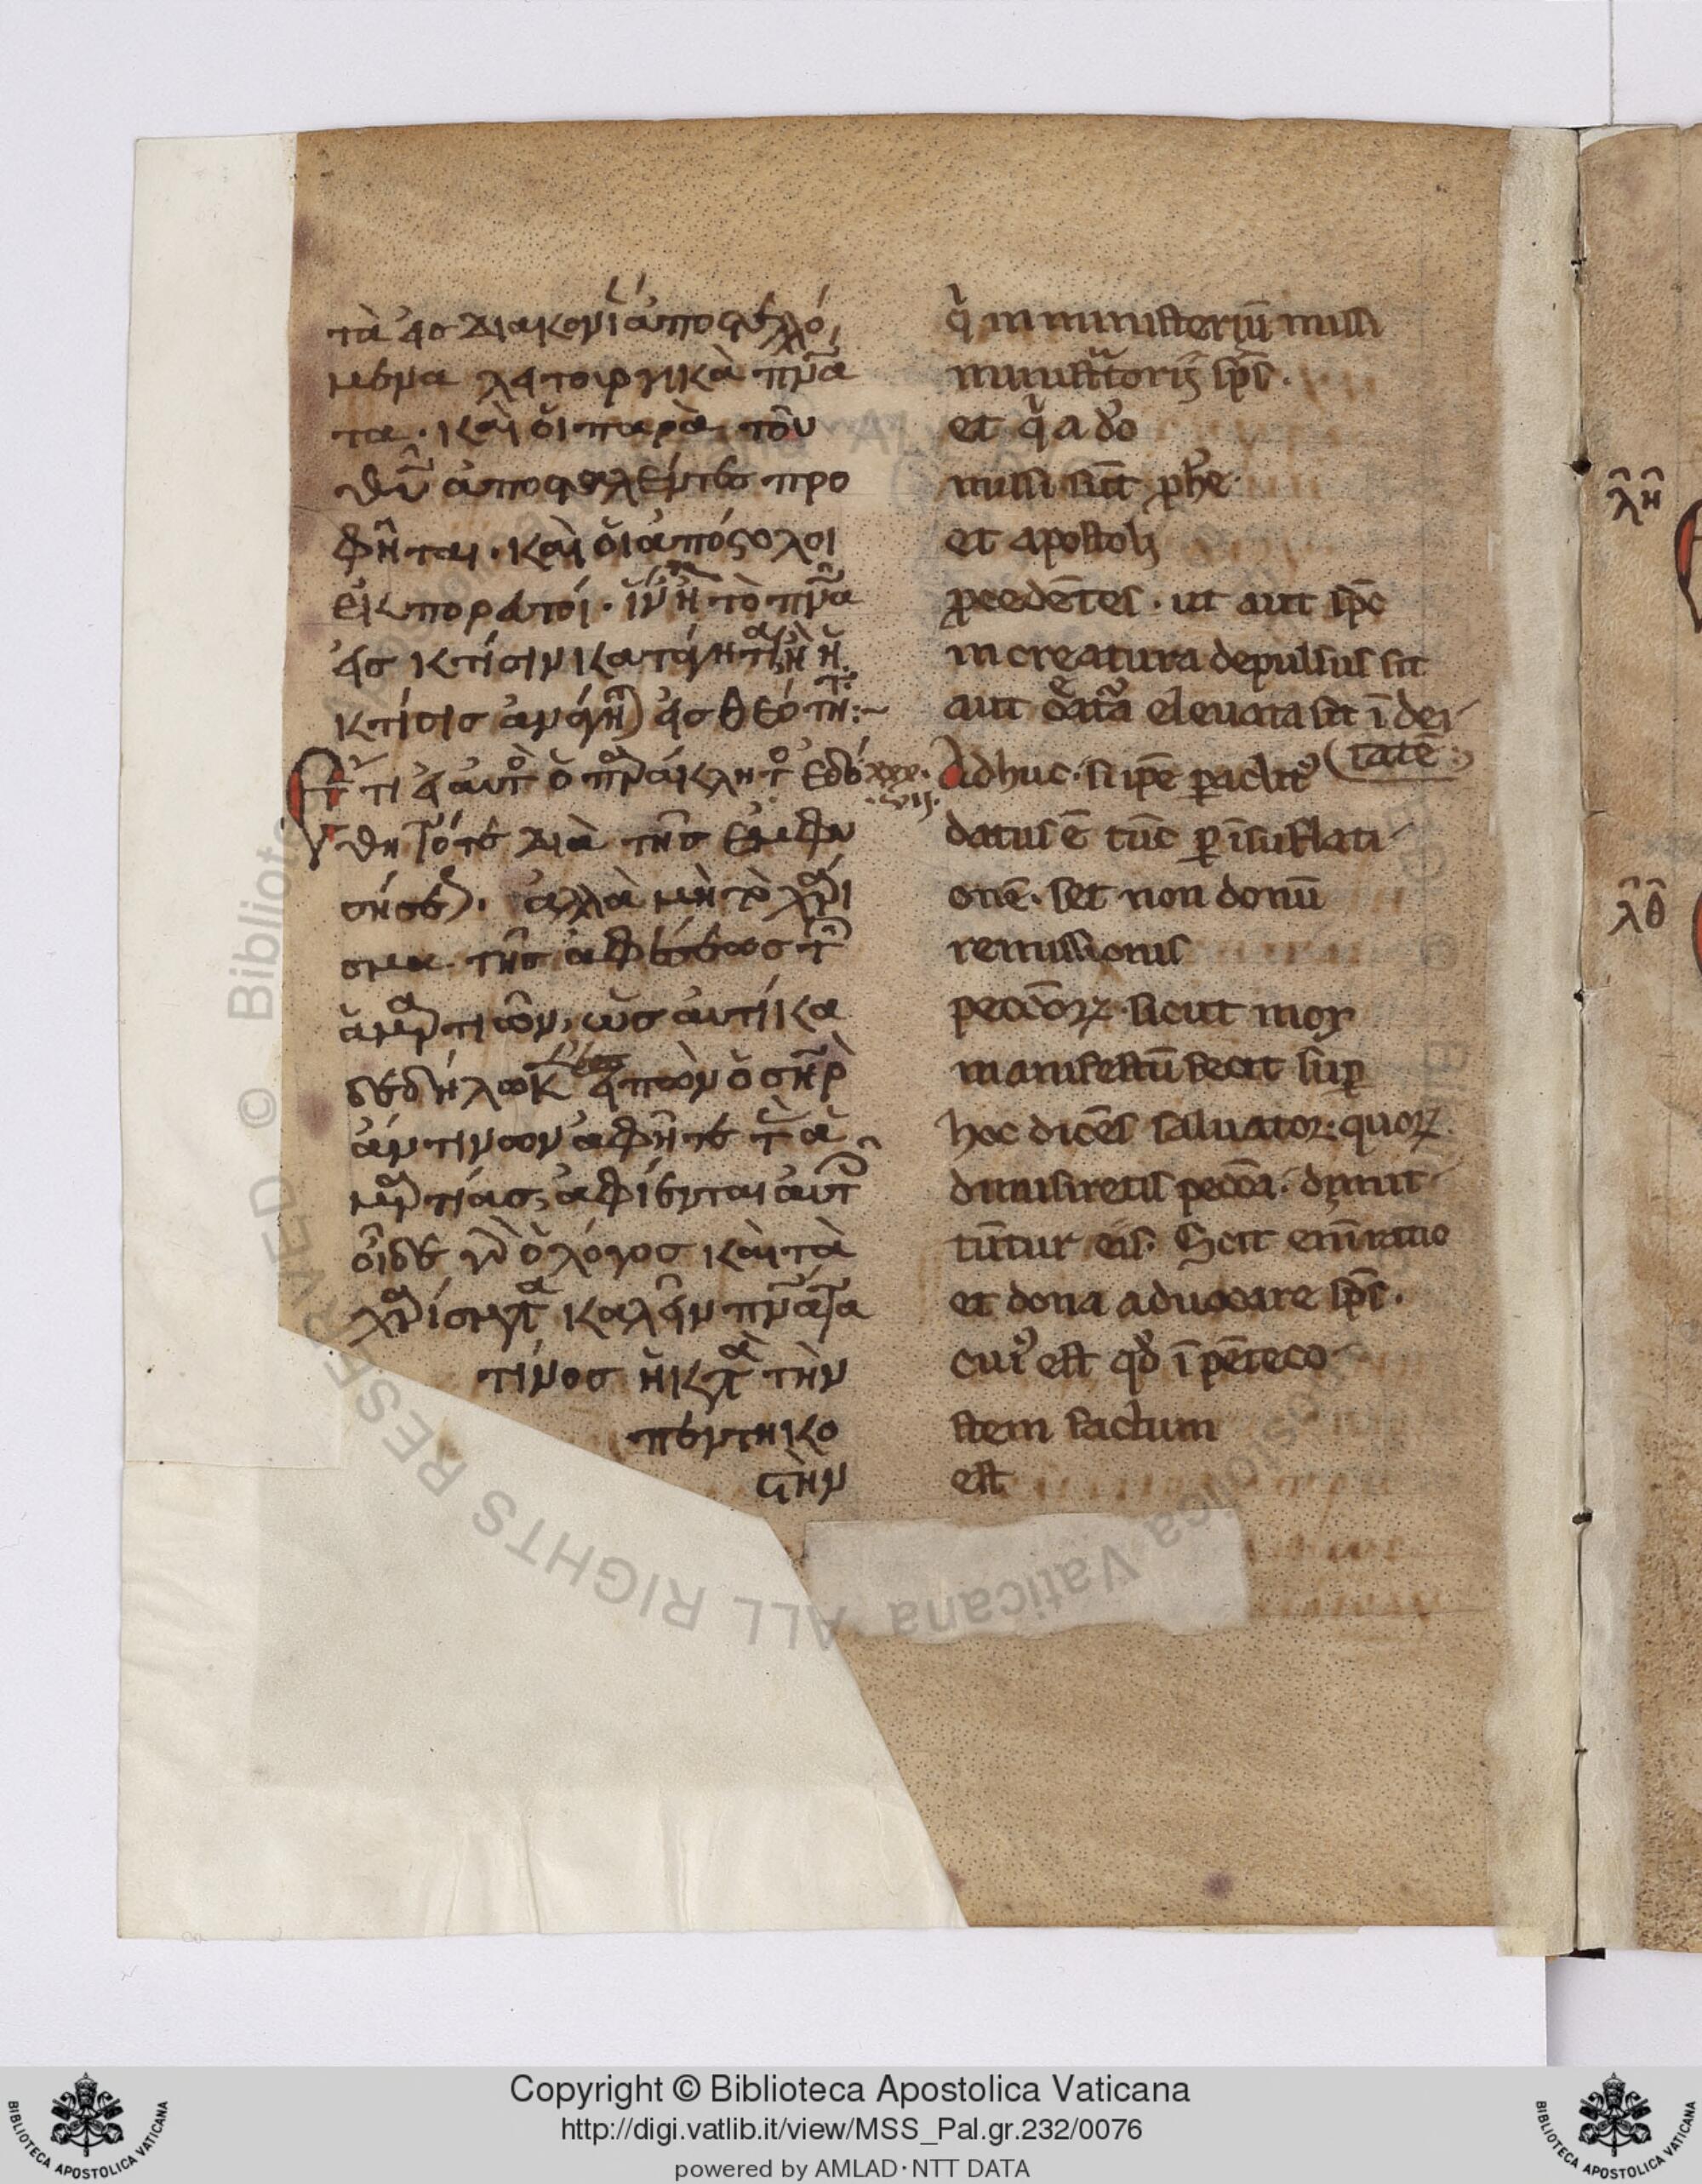 τὰ εἰς διακονίαν ἀποστελλό
μενα λειτουργικὰ πνα
τα· καὶ οἱ παρὰ τοῦ
θυ ἀποσταλέντες προ
φῆται· καὶ οἱ ἀπόστολοι
ἐκπορευτοί· ἵν' ἢ τὸ πνα
εἰς κτίσιν κατάγηται ἢ ἡ
κτίσις ἀνάγηται εἰς θεότητα:~
Ἔτι εἰ αὐτὸ ὁ παράκλητος ἐδό
θη τότε διὰ τῆς ἐμφυ
σήσεως· ἀλλὰ μὴ τὸ χάρι
σμα τῆς ἀφέσεως τῶν
ἁμαρτιῶν, ὡς αὐτίκα
δεδήλωκεν εἰπὼν ὁ σηρ
ἄν τινων ἀφῆτε τὰς ἁ
μαρτίας, ἀφίενται αὐτοῖς
οἶδε γὰρ ὁ λόγος καὶ τὰ
χαρίσματα καλεῖν πνατα
τίνος ἡ κατὰ τὴν
πεντηκο
στὴν
q in ministeriu missi
ministratorii sps.
et q a do
missi sunt phe·
et apostoli
pcedetes· ut aut spc
in creatura depulsus sit
aut creata eleuata sit i dei
tate:
xxx
vij.
Adhuc· si ipe paclitus
datus e tuc p isuflati
one· set non donu
remissionis
peccoru· sicut mox
manifestu fecit sup
hoc dices saluator: quoru
dimisiretis pecca· dimit
tutur eis· Scit eni ratio
et dona aduocare sps·
cuius est qd i peteco
stem factum
est
λη
λθ
Copyright © Biblioteca Apostolica Vaticana
http://digi.vatlib.it/view/MSS_Pal.gr.232/0076
powered by AMLAD·NTT DATA
BIBLIOTECA APOSTOLICA VATICANA
BIBLIOTECA APOSTOLICA VATICANA